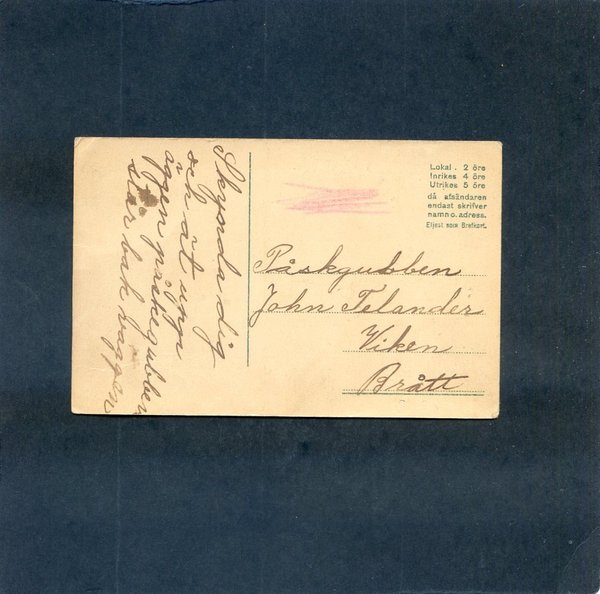 Skynda dig
och ät upp
äggen påskgubben
står bak väggen
Lokal . 2 öre
Inrikes 4 öre
Utrikes 5 öre
då afsändaren
endast skrifver
namn o. adress.
Eljest som Brefkort.
Påskgubben
John Telander
Viken
Brått